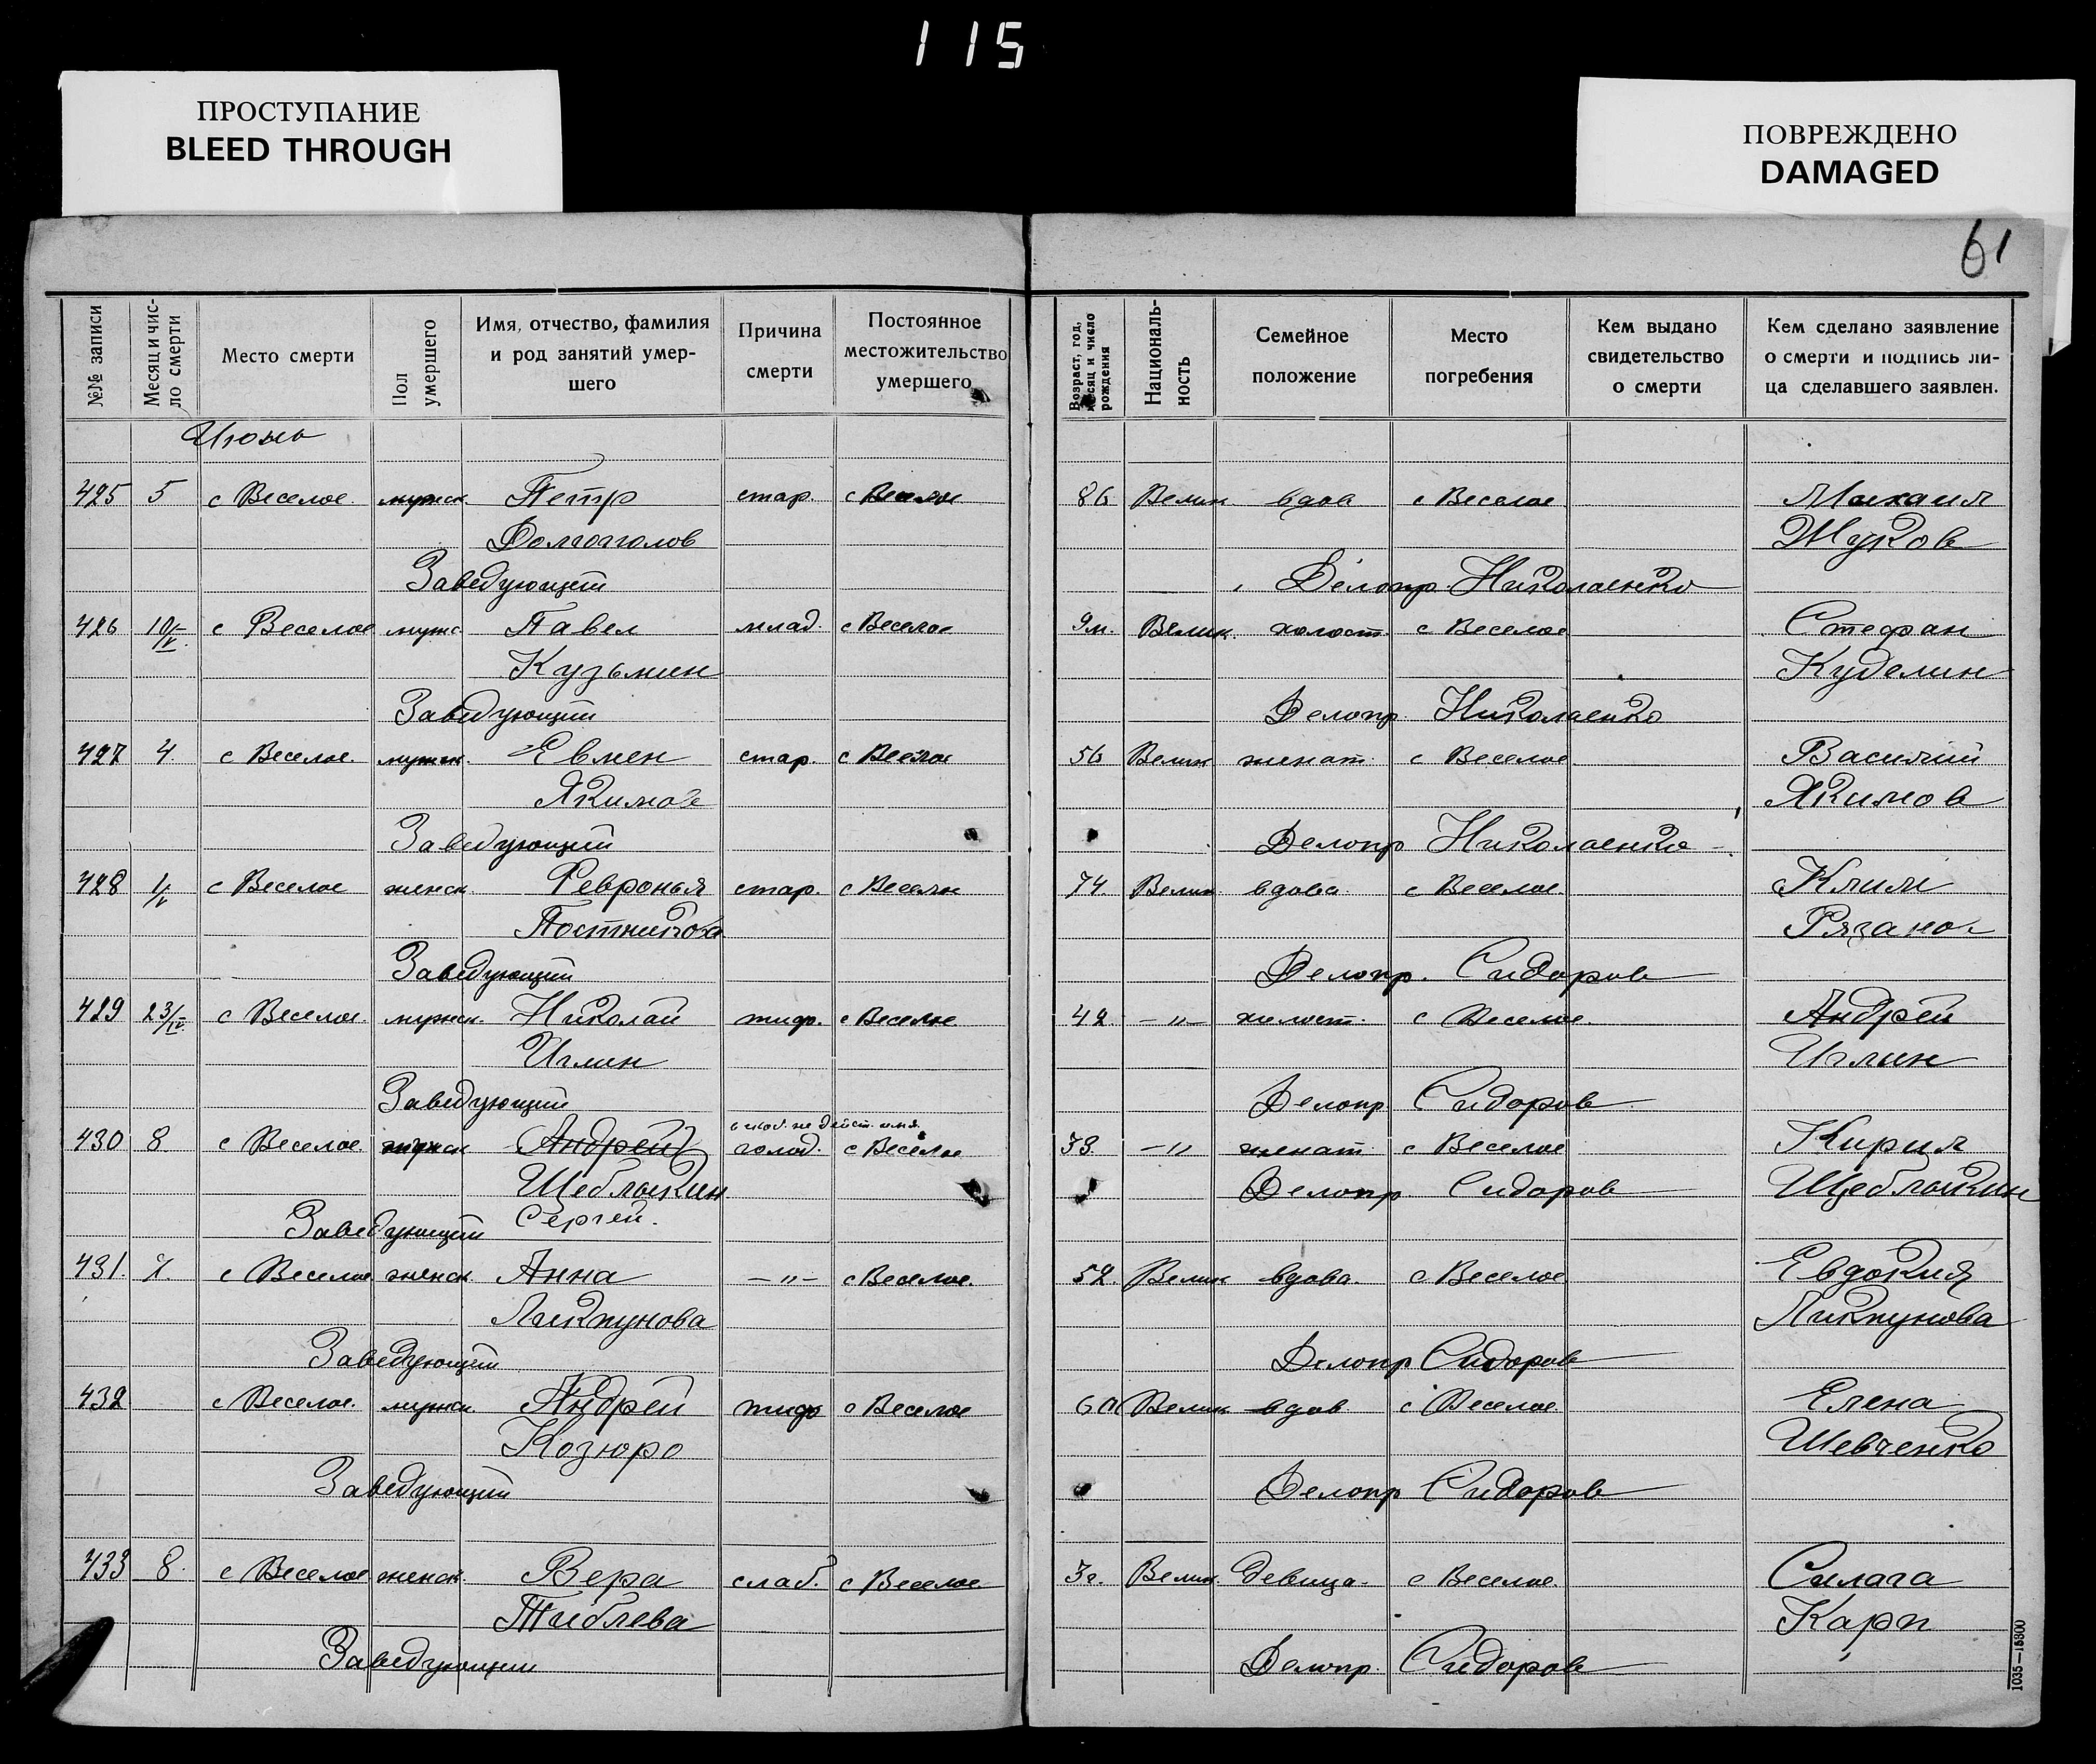 115
ПРОСТУПАНИЕ
BLEED THROUGH
ПОВРЕЖДЕНО
DAMAGED
61
№№ записи
Месяц и число смерти
Место смерти
Пол умершего
Имя, отчество, фамилия
и род занятий умер-
шего
Причина
смерти
Постоянное
местожительство
умершего
Возраст, год, месяц и число рождения
Националь-
ность
Семейное
положение
Место
погребения
Кем выдано
свидетельство
о смерти
Кем сделано заявление
о смерти и подпись ли-
ца сделавшего заявлен.
Июнь
425 5 с Веселое мужск. Петр стар. с Веселое 86 Велик. вдов с Веселое Михаил
Долгоголов Жуков
Заведующий Делопр. Николаенко
426 10/V с Веселое мужс. Павел млад. с Веселое 9м. Велик. холост. с Веселое Стефан
Кузьмин Куделин
Заведующий Делопр. Николаенко
427 4. с Веселое. мужск. Евмен стар. с Веселое 56 Велик женат с Веселое Василий
Якимов Якимов
Заведующий Делопр Николаенко
428 1/V с Веселое женск Февронья стар. с Веселое 74. Велик. вдова с Веселое. Клим
Постникова Рязанов
Заведующий Делопр. Сидоров
429 23/IV с Веселое. мужск. Николай тиф. с Веселое 42. -"- холост. с Веселое. Андрей
Иглин Иглин
Заведующий Делопр. Сидоров
430 8 с Веселое Андрей голод. с Веселое 33. -"- женат с Веселое Кирил
Щеблыкин Делопр Сидоров Щеблыкин
Заведующий Сергей.
431. с Веселое женск Анна -"- с Веселое. 52. Велик вдова. с Веселое Евдокия
Ликтунова Ликтунова
Заведующий Делопр Сидоров
432 с Веселое. мужск Андрей тиф с Веселое 60 Велик вдов. с Веселое. Елена
Козюро Шевченко
Заведующий Делопр Сидоров
433 8. с Веселое женск. Вера слаб. с Веселое 3г. Велик. девица. с Веселое. Силага
Карп
Заведующий Делопр. Сидоров